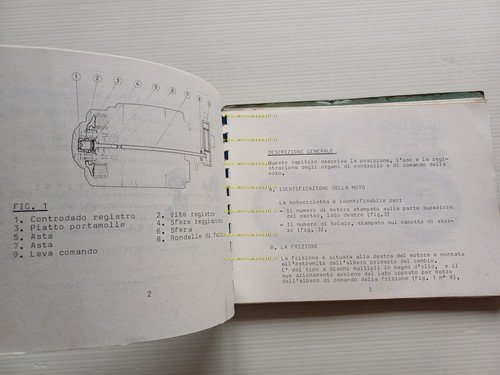 1 2 3 4 5 6 7 8 9
FIG. 1
1. Controdado registro
2. Vite registro
3. Piatto portamolle
4. Sfere raggispinta
5. Asta
6. Sfera
7. Asta
8. Rondelle di
9. Leva comando
2
DESCRIZIONE GENERALE
Questo capitolo descrive la posizione, l'uso e la regi-
strazione degli organi di controllo e di comando della
moto.
A. IDENTIFICAZIONE DELLA MOTO
La motocicletta è identificabile par:
- Il numero di motore stampato sulla parte superiore
del carter, lato destro (fig.3)
- Il numero di telaio, stampato sul canotto di ster-
zo (fig. 3).
B. LA FRIZIONE
La frizione è situata alla destra del motore e montata
all'estremità dell'albero primario del cambio.
E' del tipo a dischi multipli in bagno d'olio, e il
suo azionamento avviene dal lato opposto per mezzo
dell'albero di comando della frizione (Fig. 1 n° 9).
3